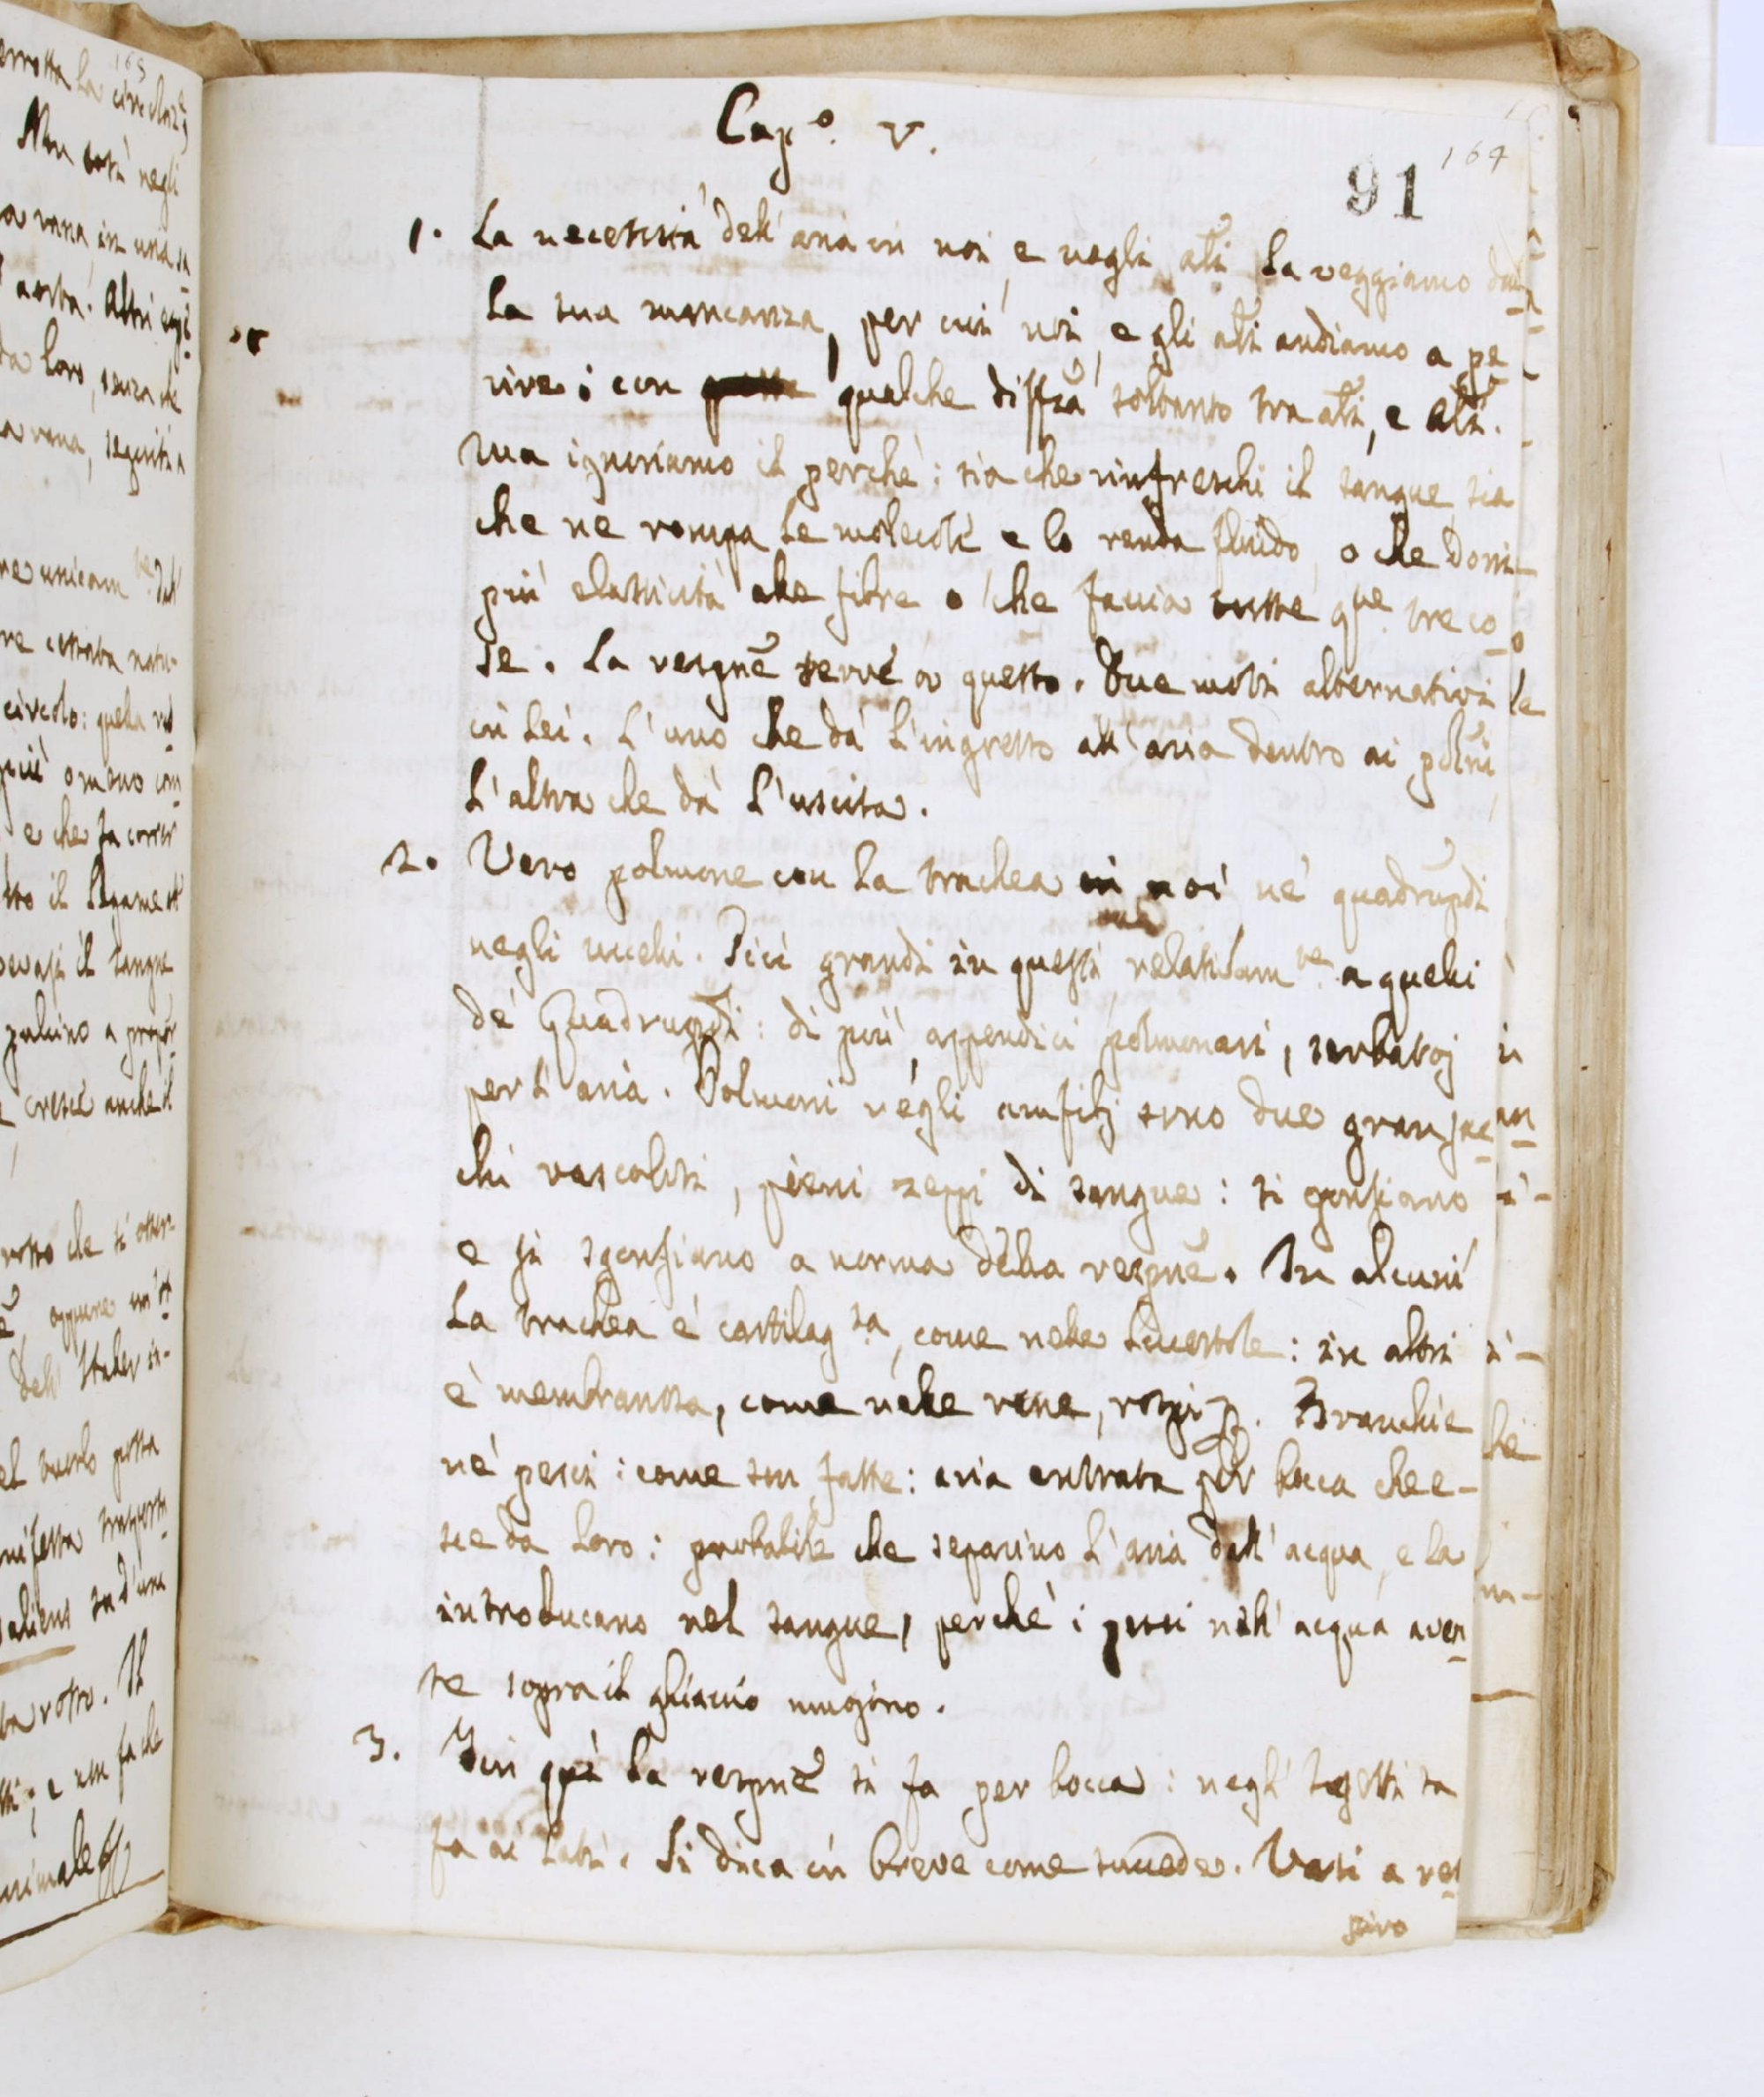 165
errotta la circolaz.e
Non così negli
a vana, in una sa
aorta. Altri espe
da loro, senza che
a vena, seguita a
re unicam.te dall'
re cessata natu-
circolo: quella ves
più o meno com
e che fa correr
tto il legame st
pulcino a propor
cresce anche il
rosso che si osser
oppure un'al
dell' Haller in-
el tuorlo possa
nifesta trasporta
saliens sa d'una
ba rosso. Il
tti; e non fa che
nimale
Cap.o V.
164
91
1. La necessità dell'aria in noi, e negli ati la veggiamo dal
la sua mancanza, per cui noi, e gli ati andiamo a pe
rire; con qualche diffza soltanto tra ati, e ati.
ma ignoriamo il perchè: sia che rinfreschi il sangue sia
che ne rompa le molecole e lo renda fluido, o che doni
più elasticità alle fibre o che faccia tutte q.ue tre co
se. La respne serve a questo. Due moti alternativi
in lei. L'uno che dà l'ingresso all'aria dentro ai polni
l'altra che dà l'uscita.
2. Vero polmone con la trachea in noi ne' quadrupdi
negli uccelli. Più grandi in questi relativam.te a quelli
de' Quadrupdi: di più, appendici polmonari, serbatoj
per l'aria. Polmoni negli amfibj sono due gran sac
chi vascolosi, pieni zeppi di sangue: si gonfiano
e si sgonfiano a norma della respne. In alcuni
la trachea è cartilag.sa, come nelle lucertole: in altri
è membranosa, come nelle rane, rospi p. Branchie
ne' pesci: come son fatte: aria entrata per bocca che e-
sce da loro: probabile che separino l'aria dall'acqua, e la
introducano nel sangue, perchè i pesci nell'acqua aven
te sopra il ghiaccio muojono.
3. Fin quì la respne si fa per bocca: negl'Insetti sa
fa ai lati. Si dica in breve come succede. Vasi a res
piro